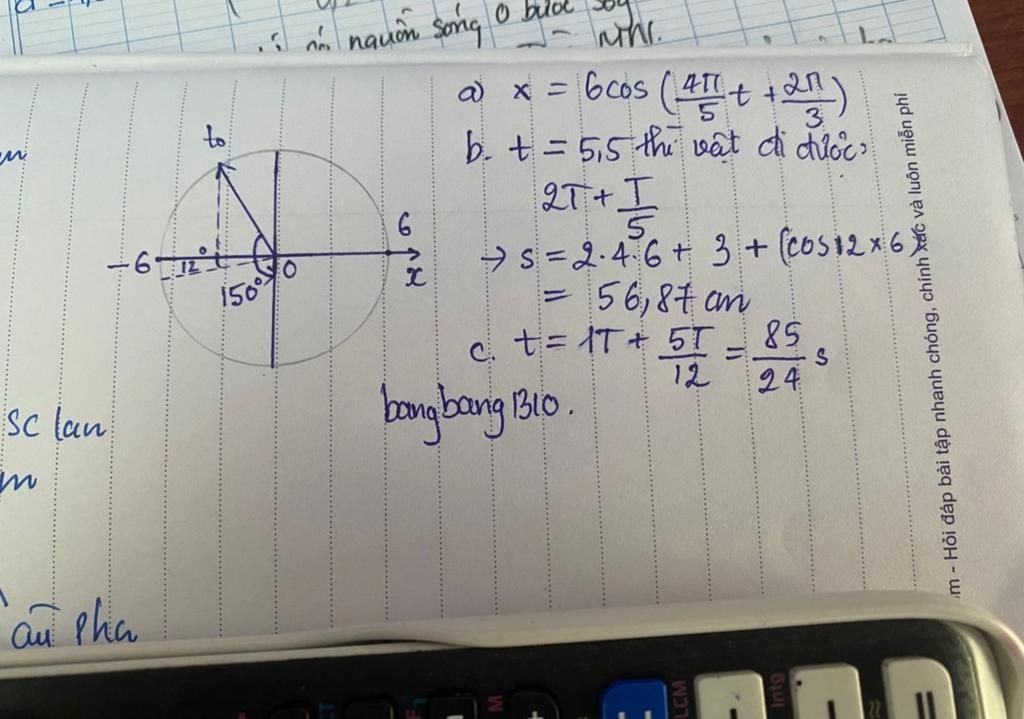 nguồn sóng O bước sóng
a) x = 6cos (4π/5 t + 2π/3)
b. t = 5,5 thì vật đi được:
2T + T/5
→ s = 2.4.6 + 3 + (cos12 × 6)
= 56,87 cm
c. t = 1T + 5T/12 = 85/24 s
bangbang1310.
to
6
-6
12°
O
x
150°
SC lan
m
ần pha
m - Hỏi đáp bài tập nhanh chóng, chính xác và luôn miễn phí
LCM
Intg
M
=